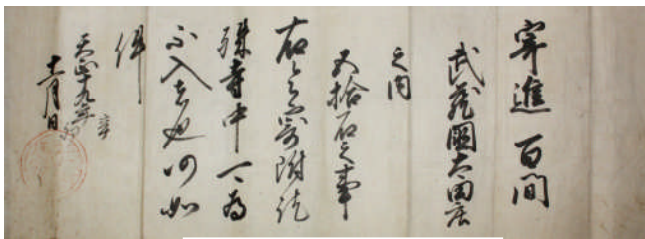 寄進 百間
武蔵國太田庄
之内
五拾石之事
右令寄附訖
殊寺中可為
不入者也仍如
件
天正十九年辛卯
十一月日